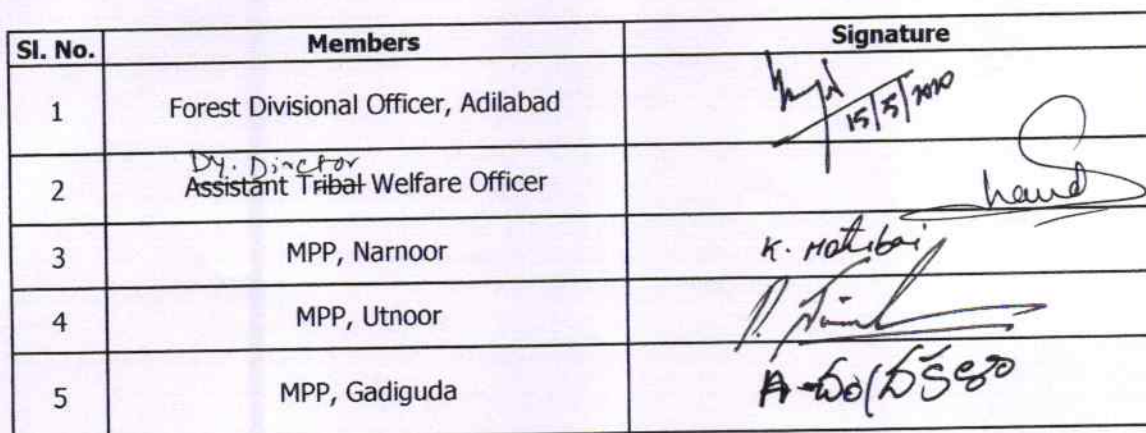 Sl. No. Members Signature
1 Forest Divisional Officer, Adilabad 15/5/2020
Dy. Director
2 Assistant Tribal Welfare Officer
3 MPP, Narnoor K. Motibai
4 MPP, Utnoor
5 MPP, Gadiguda